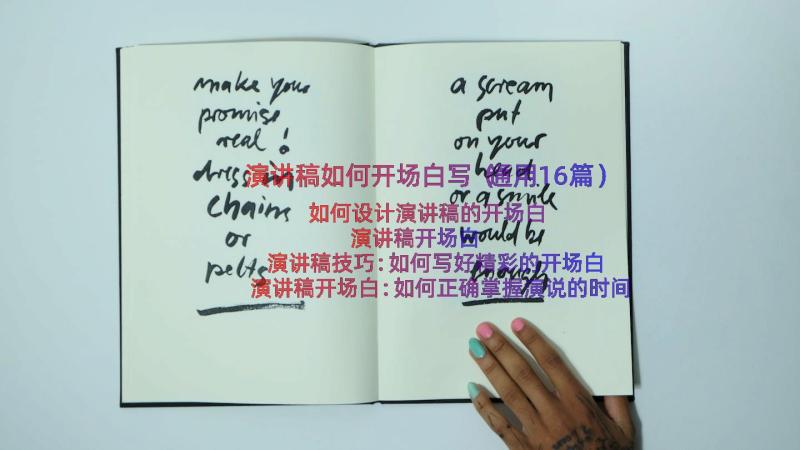 make your
promise
real!
dress in
chains
or
pelts
a scream
put
on your
head
or a smile
would be
enough
演讲稿如何开场白写（通用16篇）
如何设计演讲稿的开场白
演讲稿开场白
演讲稿技巧:如何写好精彩的开场白
演讲稿开场白:如何正确掌握演说的时间